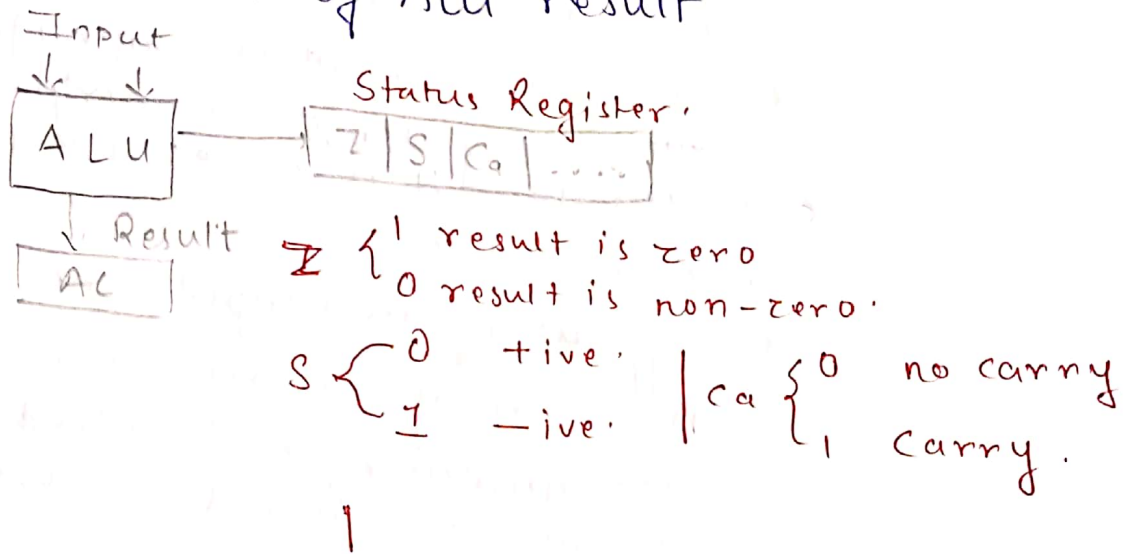 of ALU result
Input
Status Register.
ALU
Z | S | Ca | .....
Result
AC
Z { 1 result is zero
0 result is non-zero.
S { 0 +ive. | Ca { 0 no carry
1 -ive. 1 carry.